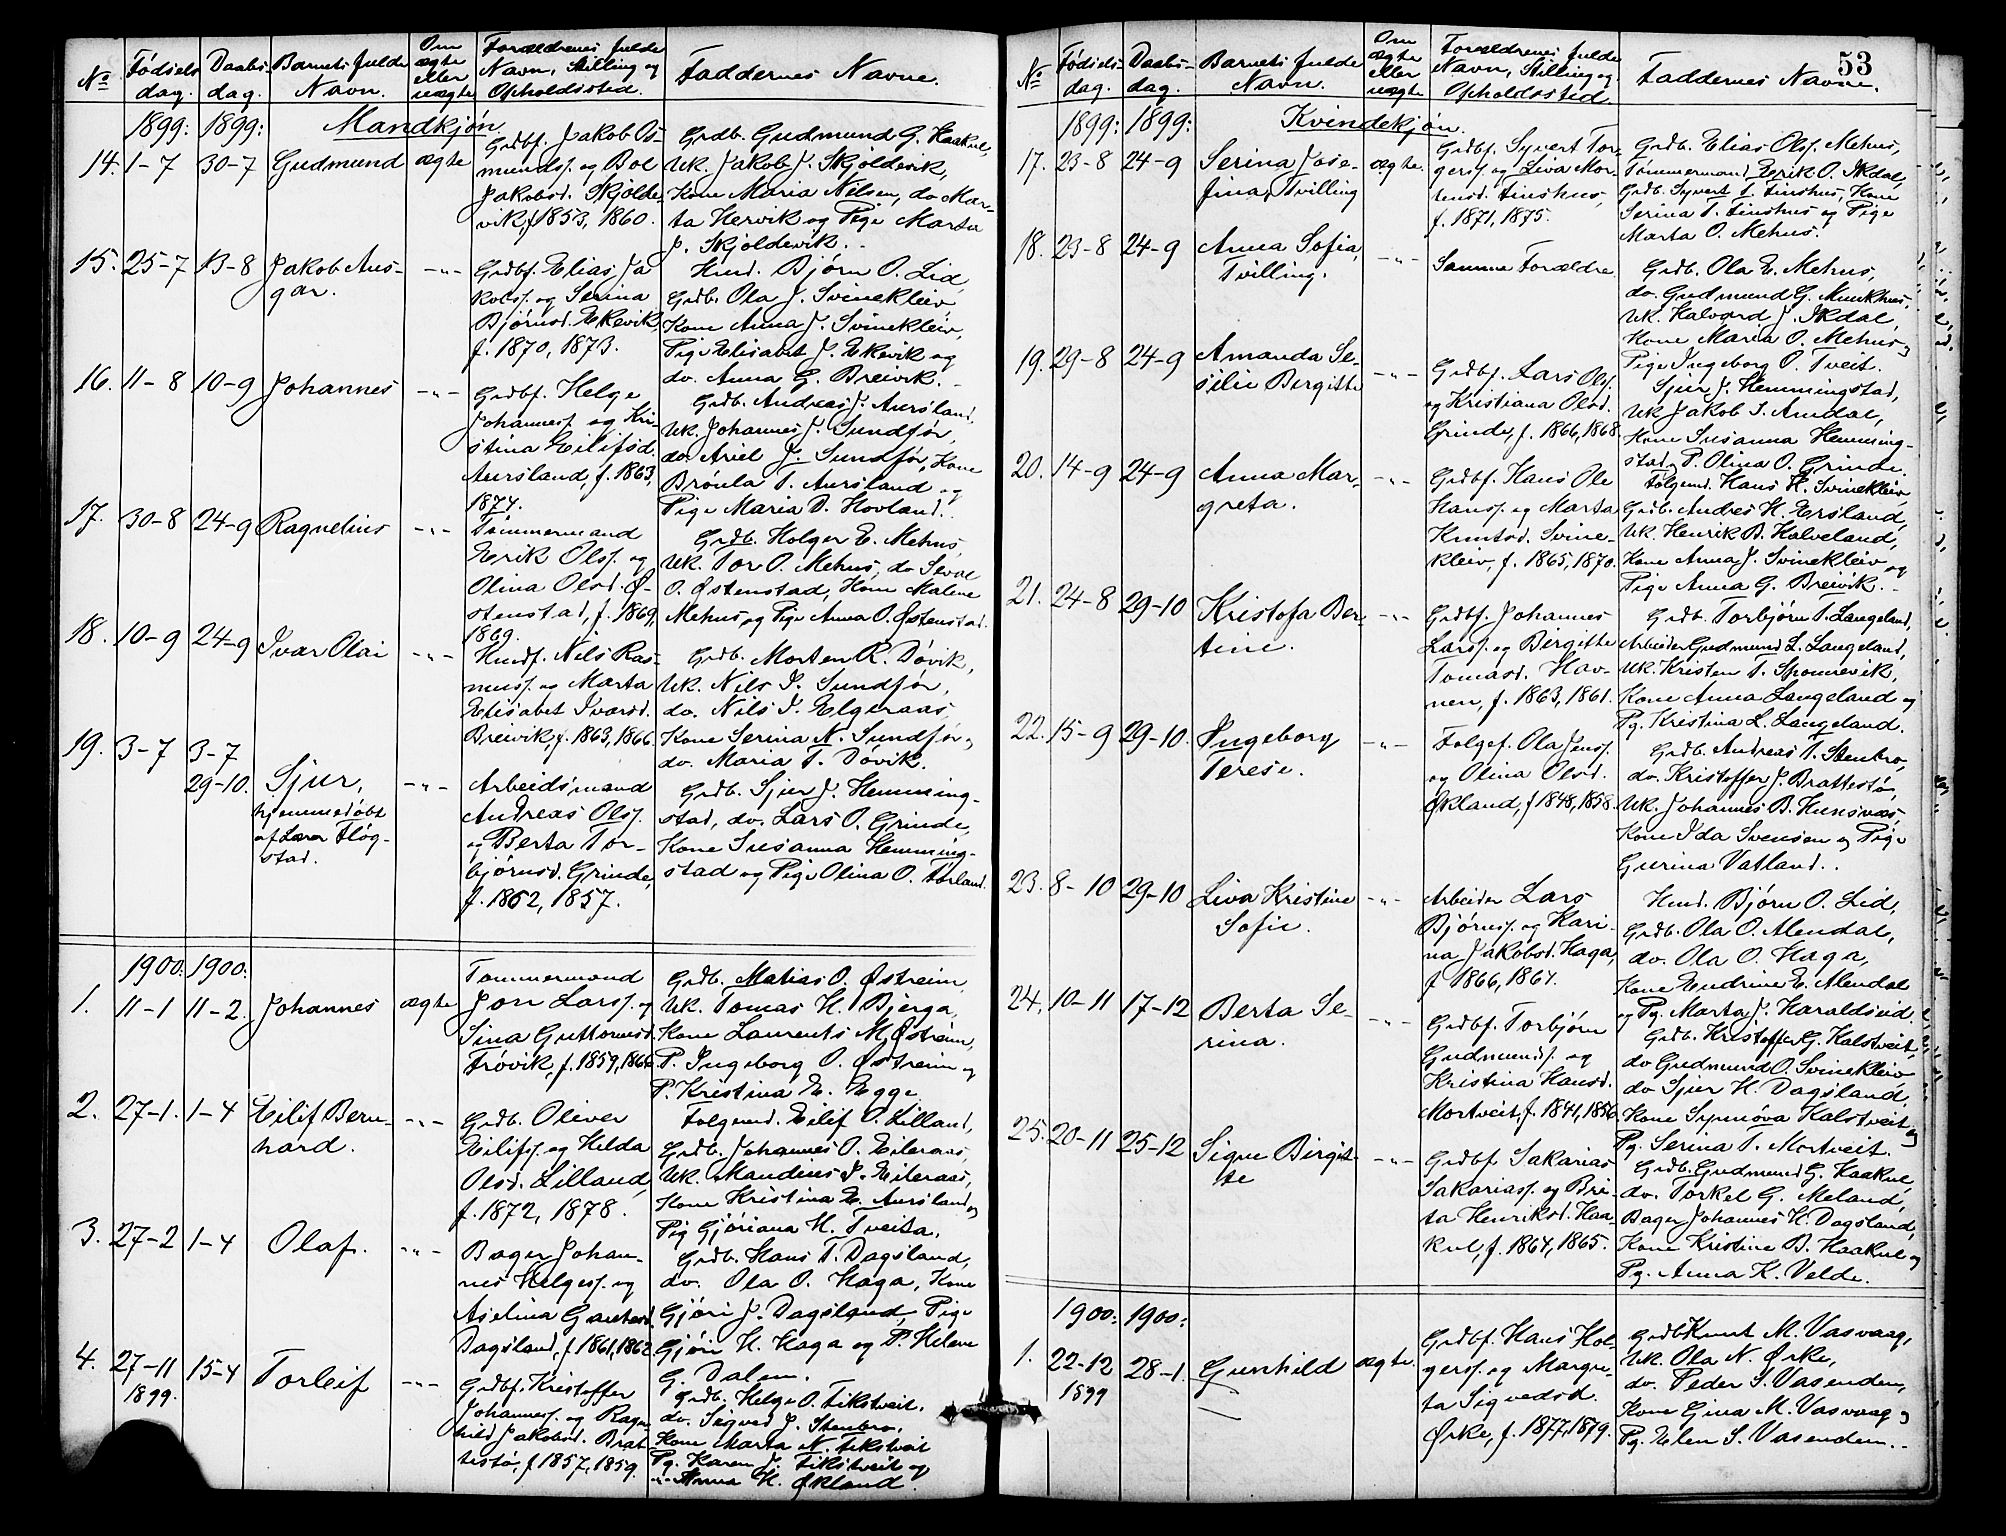 No | Fødselsdag. | Daabsdag. | Barnets fulde Navn. | Om ægte eller uægte | Forældrenes fulde Navn, Stilling og Opholdssted. | Faddernes Navne.
1899: 1899: Mandkjøn.
14. 1-7 30-7 Gudmund ægte
Grdbf. Jakob Os-
munds. og Bol
Jakobsd. Skjolde-
vik, f. 1853, 1860.
Grdb. Gudmund G. Haakul,
Uk. Jakob J. Skjoldevik,
Kone Maria Nilsen, do Mar-
ta Hervik og Pige Marta
J. Skjoldevik.
15. 25-7 13-8 Jakob Ans-
gar. -"-
Grdbf. Elias Ja
kobs. og Serina
Bjørnsd. Ekevik,
f. 1870, 1873.
Hmd. Bjørn O. Lid,
Grdb. Ola J. Svinekleiv,
Kone Anna J. Svinekleiv,
Pige Elisabet J. Ekevik og
do. Anna G. Breivik.
16. 11-8 10-9 Johannes -"-
Grdbf. Helge
Johanness. og Kri-
stina Eilifsd.
Aursland, f. 1863,
1874.
Grdb. Andreas J. Aursland,
Uk. Johannes J. Sundfør,
do. Ariel J. Sundfør, Kone
Brønla T. Aursland og
Pige Maria D. Hovland.
17. 30-8 24-9 Ragnelius -"-
Tømmermand
Erik Ols. og
Olina Olsd. Ø-
stenstad, f. 1869,
1869.
Grdb. Holger E. Mehus,
Uk. Tor O. Mehus, do Seval
O. Østenstad, Kone Malene
Mehus, og Pige Anna O. Østenstad.
18. 10-9 24-9 Ivar Olai -"-
Hmdf. Nils Ras-
muss. og Marta
Elisabet Ivarsd.
Breivik, f. 1863, 1866.
Grdb. Morten R. Døvik,
Uk. Nils I. Sundfør,
do. Nils I. Elgeraas,
Kone Serina N. Sundfør og
do. Maria T. Døvik.
19. 3-7 3-7
29-10. Sjur,
hjemmedøbt
af Lærer Fløg-
stad. -"-
Arbeidsmand
Andreas Ols.
og Berta Tor-
bjørnsd. Grinde,
f. 1852, 1857.
Grdb. Sjur J. Hemming-
stad, do. Lars O. Grinde,
Kone Susanna Hemming-
stad og Pige Olina O. Førland.
1900: 1900:
1. 11-1 11-2. Johannes ægte
Tømmermand
Jon Larss. og
Sina Guttormsd.
Frøvik, f. 1859, 1866.
Grdb. Matias O. Østreim,
Uk. Tomas H. Bjerga,
Kone Laurents M. Østreim,
P. Ingeborg O. Østreim og
P. Kristina E. Egge.
2. 27-1. 1-4 Eilif Bern-
hard. -"-
Grdb. Oliver
Eilifs. og Hilda
Olsd. Lilland,
f. 1872, 1878.
Følgemd. Eilif O. Lilland,
Grdb. Johannes O. Eileraas,
Uk. Mandius I. Eileraas,
Kone Kristina E. Aursland og
Pig Gjøriana H. Tveita.
3. 27-2 1-4 Olaf. -"-
Bager Johan-
nes Helges. og
Aselina Gautesd.
Dagsland, f. 1861, 1862.
Grdb. Hans T. Dagsland,
do. Ola O. Haga, Kone
Gjøri J. Dagsland, Pige
Gjøri H. Haga og P. Helene
G. Dalen.
4. 27-11
1899. 15-4 Torleif -"-
Grdbf. Kristoffer
Johanness. og Ragn-
hild Jakobsd. Brat-
testø, f. 1857, 1859.
Grdb. Helge O. Fikstveit,
do. Sigved J. Stenbro,
Kone Marta N. Fikstveit
Pg. Karen J. Fikstveit og
-"- Anna H. Økland.
53
No | Fødselsdag. | Daabsdag. | Barnets fulde Navn. | Om ægte eller uægte | Forældrenes fulde Navn, Stilling og Opholdssted. | Faddernes Navne.
1899: 1899: Kvindekjøn.
17. 23-8 24-9 Serina Jose-
fina, Tvilling ægte.
Grdbf. Syvert Tor-
gerss. og Liva Mor-
tensd. Finshus,
f. 1871, 1875.
Grdb. Elias Ols. Mehus,
Tømmermand Erik O. Ikdal,
Grdb. Syvert T. Finshus, Kone
Serina T. Finshus og Pige
Marta O. Mehus.
18. 23-8 24-9 Anna Sofia,
Tvilling. -"- Samme Forældre
Grdb. Ola E. Mehus,
do. Gudmund G. Munkhus,
Uk. Halvard J. Ikdal,
Kone Maria O. Mehus og
Pige Ingeborg O. Tveit.
19. 29-8 24-9 Amanda Se-
silie Bergitte -"-
Grdbf. Lars Ols.
og Kristiana Olsd.
Grinde, f. 1866, 1868.
Sjur J. Hemmingstad,
Uk Jakob S. Amdal,
Kone Susanna Hemming-
stad, P. Olina O. Grinde.
20. 14-9 24-9 Anna Mar-
greta. -"-
Grdbf. Hans Ole
Hanss. og Marta
Knutsd. Svine-
kleiv, f. 1865, 1870.
Følgemd. Hans H. Svinekleiv,
Grdb. Andres H. Ersland,
Uk. Henrik B. Halveland,
Kone Anna J. Svinekleiv og
Pige Anna G. Breivik.
21. 24-8 29-10 Kristofa Ber-
tine. -"-
Grdbf. Johannes
Larss. og Birgitte
Tomasd. Hav-
nen, f. 1863, 1861.
Grdb. Torbjørn T. Langeland,
Arbeider Gudmund L. Langeland,
Uk. Kristen T. Sponnevik,
Kone Anna Langeland og
Pg. Kristina L. Langeland.
22. 15-9 29-10. Ingeborg
Terese. -"-
Følgef. Ola Jens.
og Olina Olsd.
Økland, f. 1848, 1858.
Grdb. Andreas T. Stenbro,
do. Kristoffer J. Brattestø,
Uk. Johannes B. Hunsvæs,
Kone Ida Svensen og Pige
Gurina Vatland.
23. 8-10 29-10 Liva Kristine
Sofie. -"-
Arbeider Lars
Bjørns. og Kari-
na Jakobsd. Haga,
f 1866, 1867.
Hmd. Bjørn O. Lid,
Grdb. Ola O. Alendal,
do. Ola O. Haga,
Kone Endrine E. Alendal
og Pg. Marta J. Haraldseid.
24. 10-11 17-12 Berta Se-
rina. -"-
Grdbf. Torbjørn
Gudmunds. og
Kristina Hansd.
Mortveit, f. 1841, 1856.
Grdb. Kristoffer G. Kalstveit,
do Gudmund O. Svinekleiv
do Sjur H. Dagsland,
Kone Synnøva Kalstveit og
Pg. Serina T. Mortveit.
25. 20-11 25-12 Signe Birgit-
te -"-
Grdbf. Sakarias
Sakariass. og Bri-
ta Henriksd. Haa-
kul, f. 1864, 1865.
Grdb. Gudmund G. Haakul,
do. Torkel G. Meland,
Bager Johannes H. Dagsland,
Kone Kristine B. Haakul og
Pg. Anna K. Velde.
1900: 1900:
1. 22-12
1899 28-1 Gunhild ægte.
Grdbf. Hans Hol-
gerss. og Margre-
ta Sigvedsd.
Ørke, f. 1877, 1879.
Grdb Knut M. Vasvaag,
Uk. Ola N. Ørke,
do. Peder S. Vasenden,
Kone Gina M. Vasvaag og
Pg. Elen S. Vasenden.